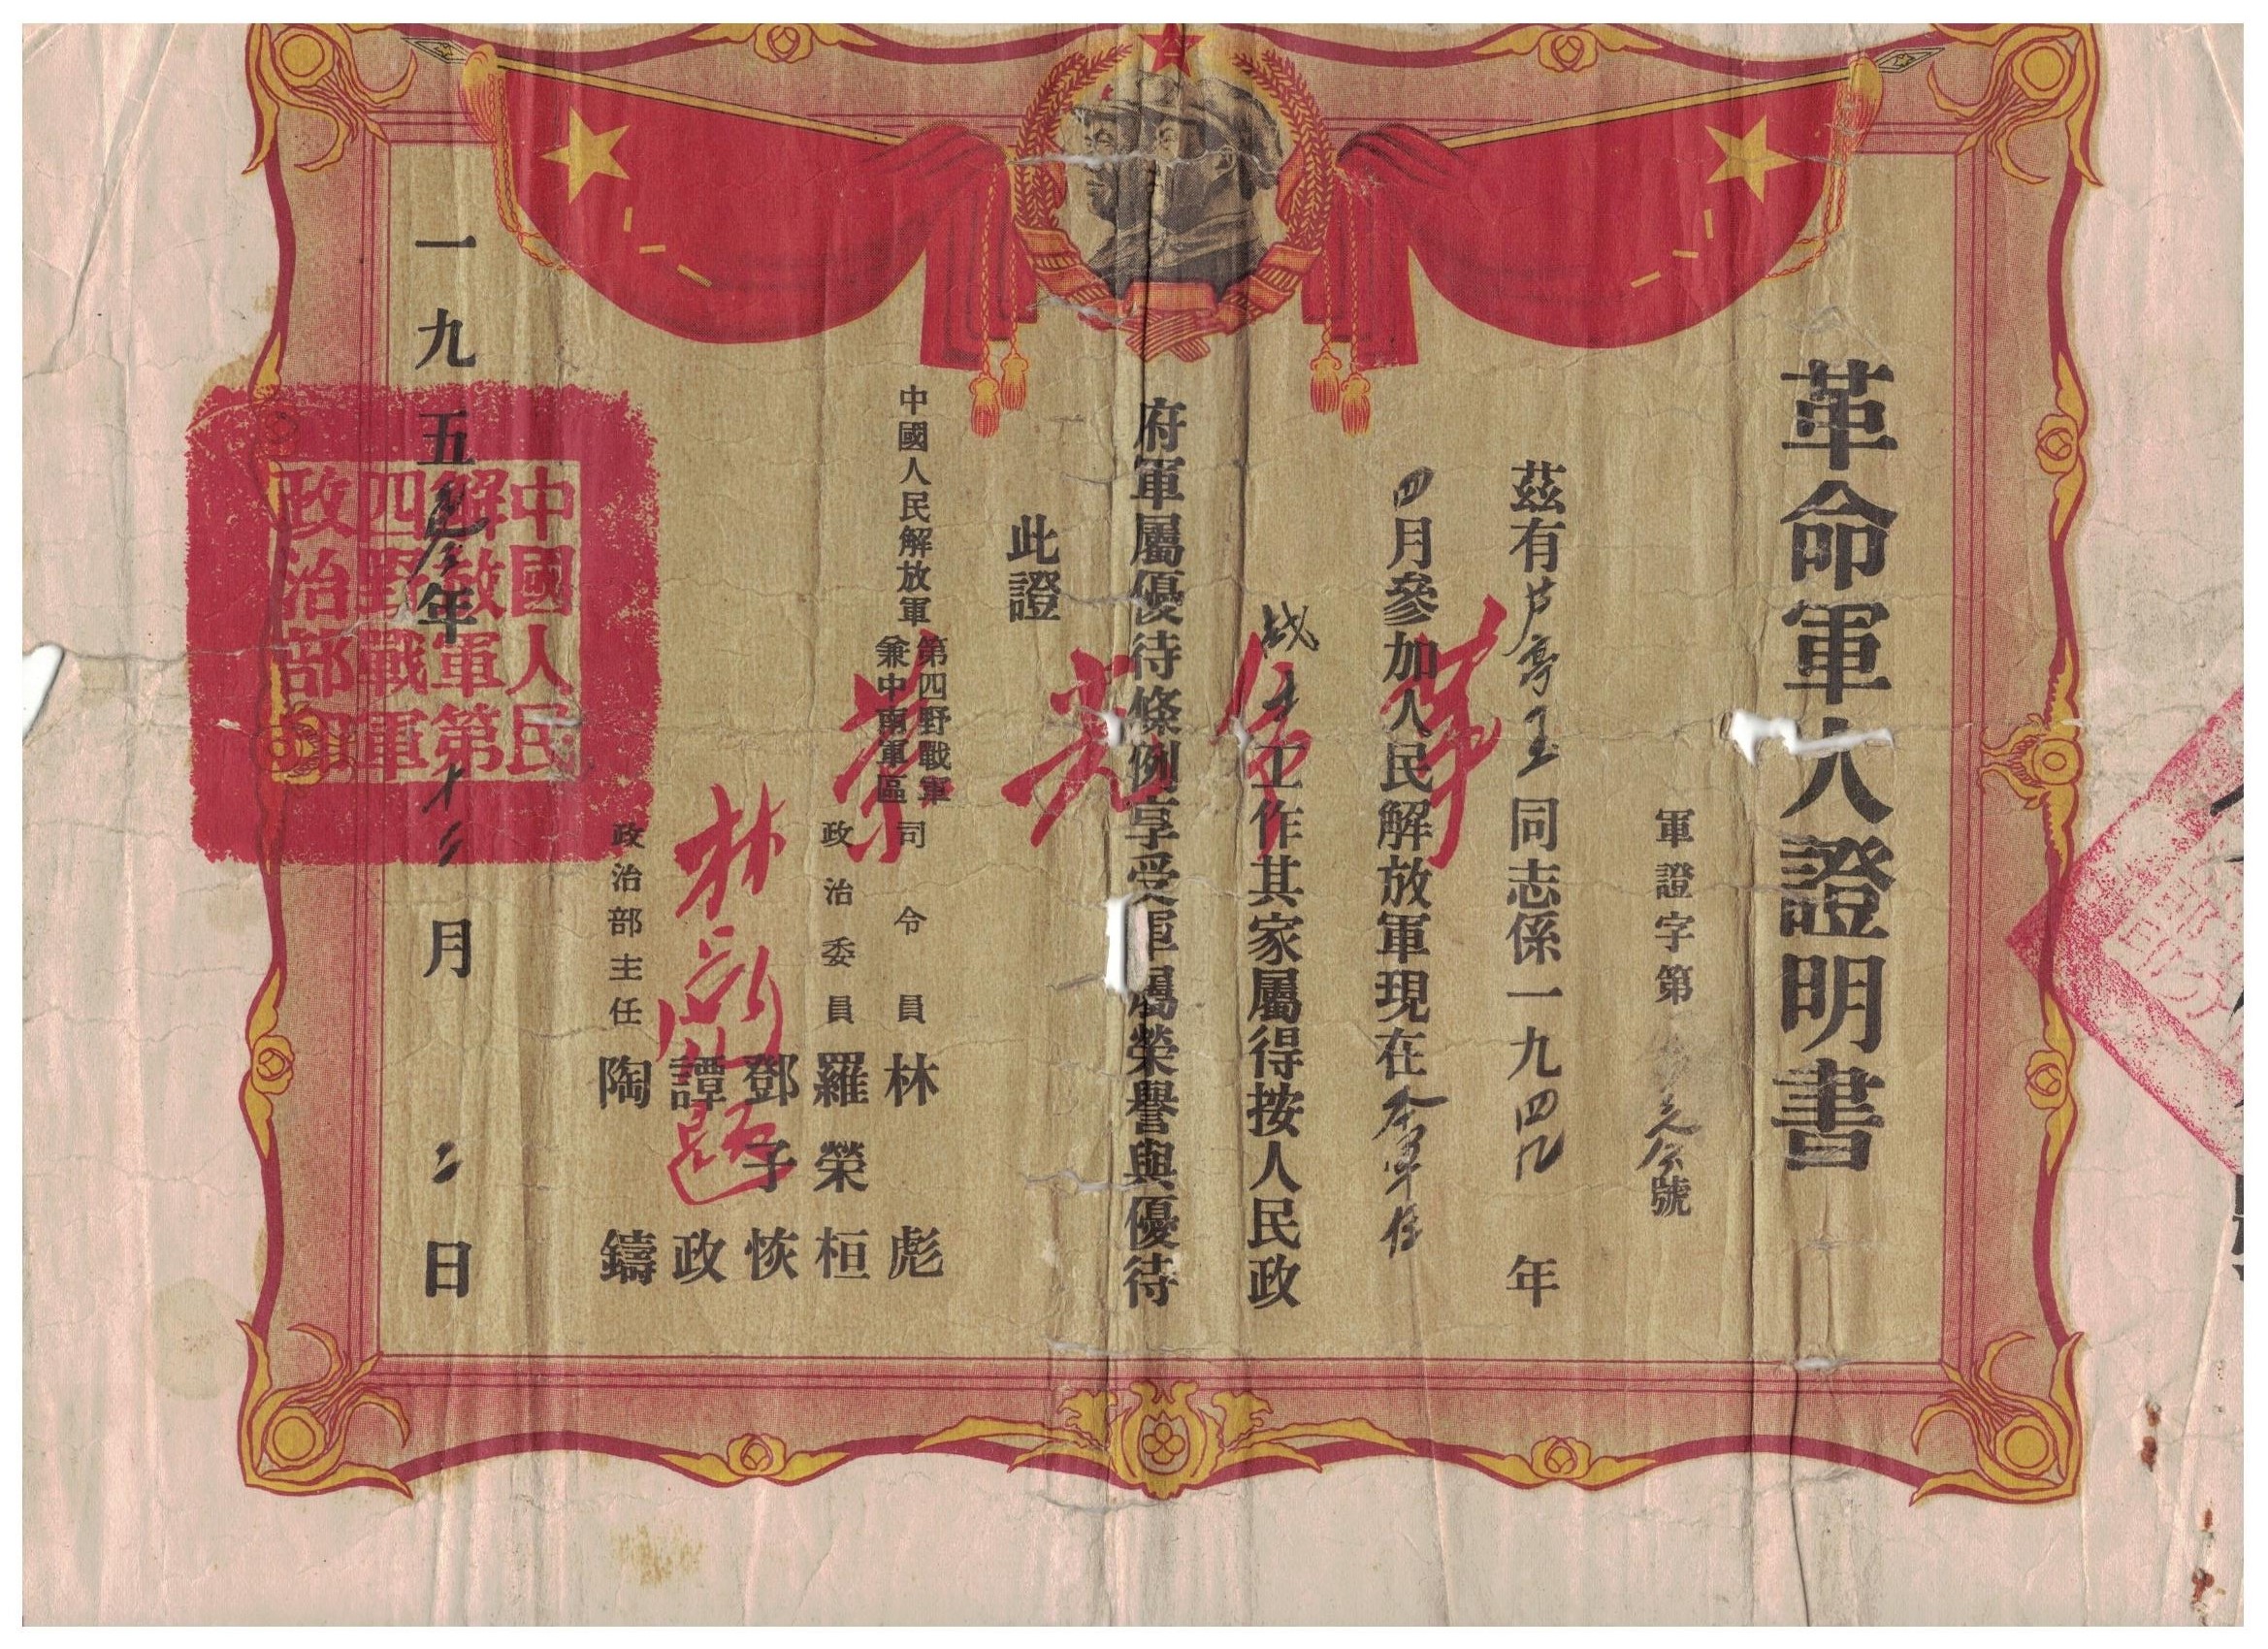 革命軍人證明書
軍證字第 號
茲有芦亭玉同志係一九四九年
四月參加人民解放軍現在本軍任
战士工作其家屬得按人民政
府軍屬優待條例享受軍屬榮譽與優待
此證
中國人民解放軍
第四野戰軍
兼中南軍區
司令員 林彪
政治委員 羅榮桓
鄧子恢
譚政
政治部主任 陶鑄
一九五 年十二月二日
中國人民
解放軍第
四野戰軍
政治部印
革
命
光
榮
林彪
題